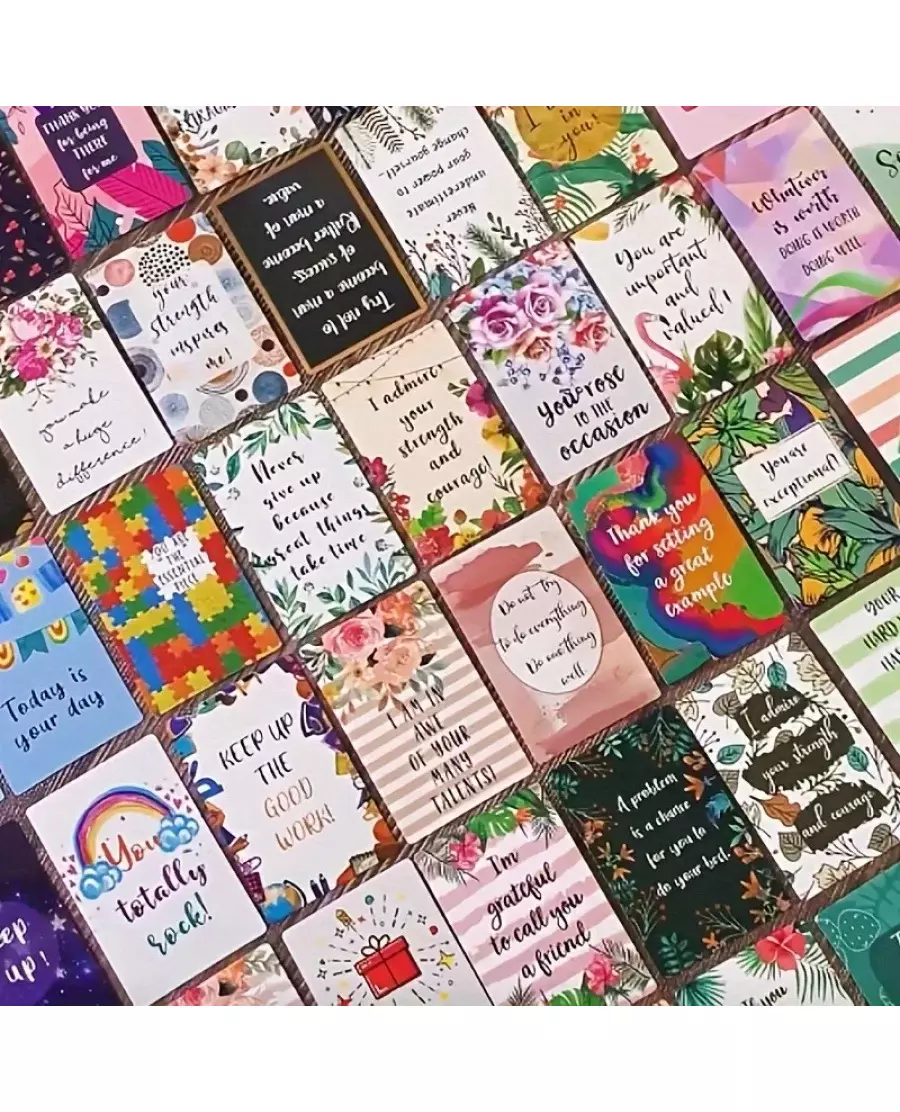 THANK YOU
for being
THERE
for me
in
you!
Never
underestimate
your power to
change yourself...
Try not to
become a man
of success.
Rather become
a man of
value.
Whatever
is worth
DOING IT WORTH
DOING WELL.
You are
important
and
valued!
your
strength
inspires
me!
you make
a huge
difference!
I admire
your
strength
and
courage!
You rose
TO THE
occasion
Never
give up
because
great things
take time
You are
exceptional!
Thank you
for setting
a great
example
YOU ARE
THE
ESSENTIAL
PIECE
Do not try
to do everything
Do one thing
well
Today is
your day
I AM IN
AWE
OF YOUR
MANY
TALENTS!
YOUR
HARD
KEEP UP
THE
GOOD
WORK!
I admire
your strength
and courage
A problem
is a chance
for you to
do your best.
You
totally
rock!
I'm
grateful
to call you
a friend
up!
If you